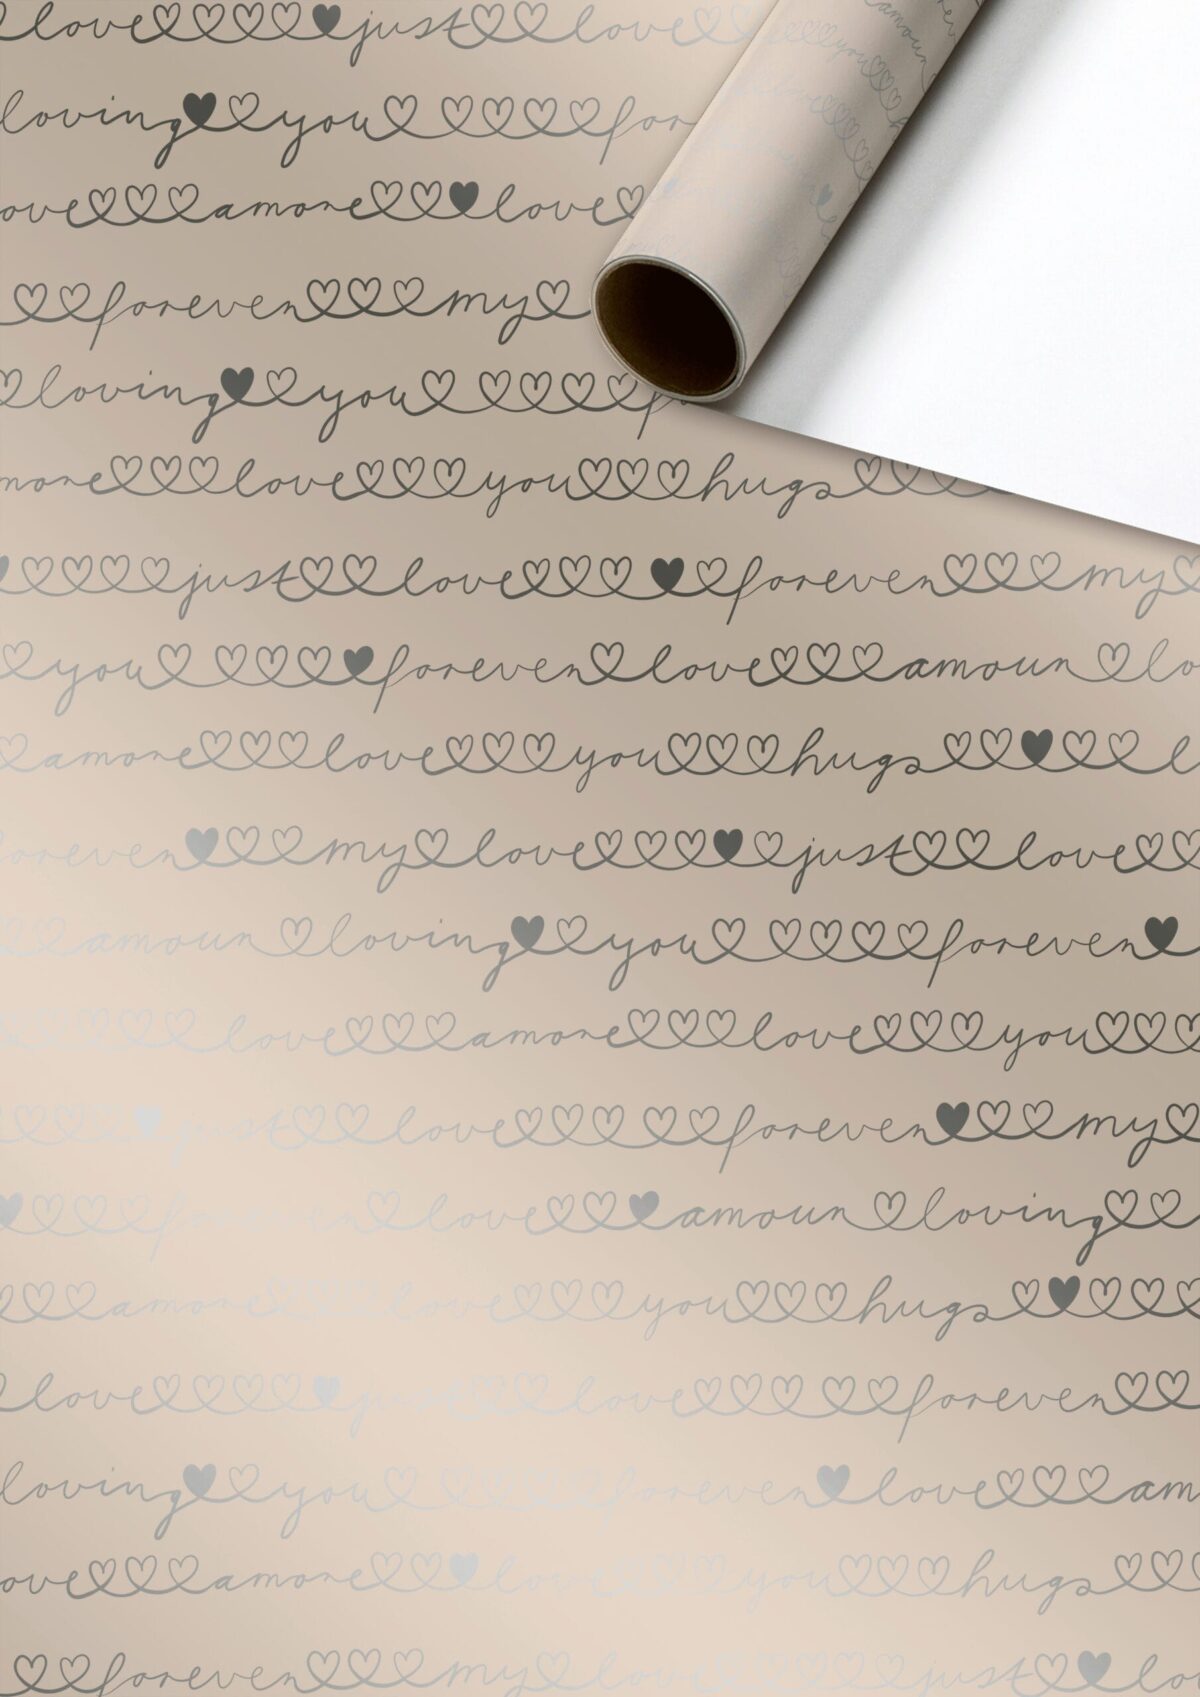 love just love
loving you for
ove amore love
forever my
loving you f
more love you hugs
just love forever my
you forever love amour lo
amore love you hugs l
orever my love just love
amour loving you forever
love amore love you
just love forever my
forever love amour loving
amore love you hugs
love just love forever
loving you forever love am
ove amore love you hugs
forever my love just lo